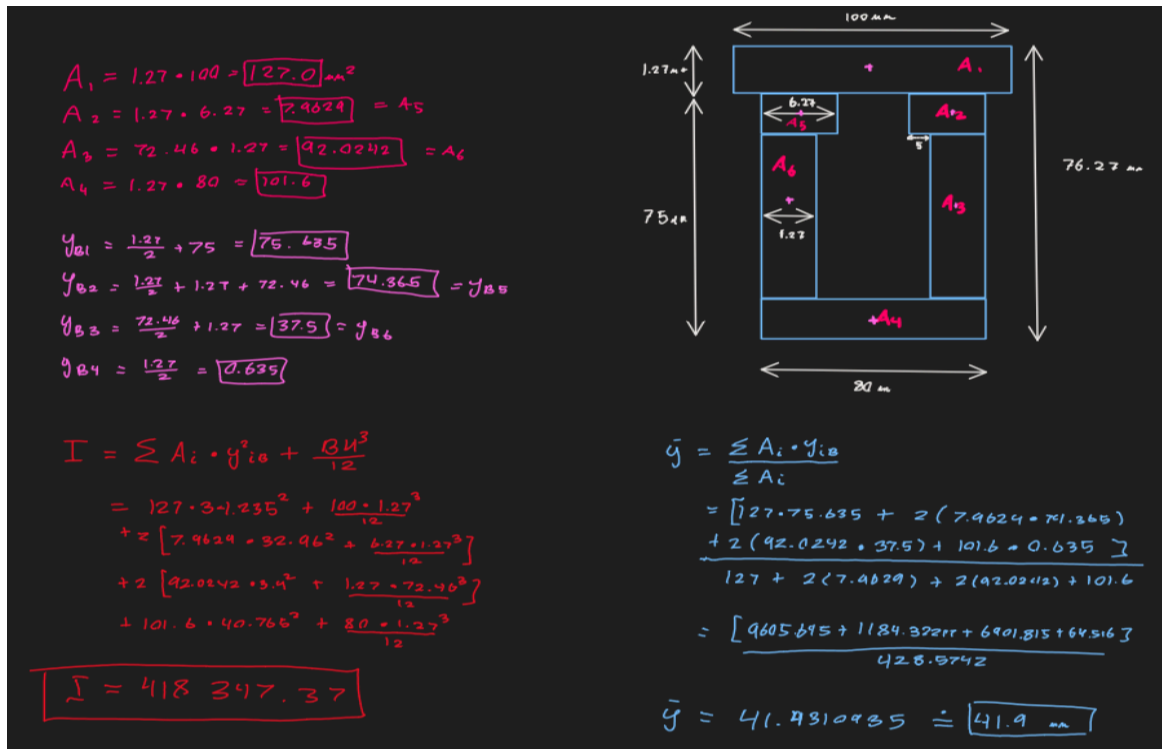 A₁ = 1.27 • 100 = 127.0 mm²
A₂ = 1.27 • 6.27 = 7.9629 = A₅
A₃ = 72.46 • 1.27 = 92.0242 = A₆
A₄ = 1.27 • 80 = 101.6
y_B1 = 1.27/2 + 75 = 75.635
y_B2 = 1.27/2 + 1.27 + 72.46 = 74.365 = y_B5
y_B3 = 72.46/2 + 1.27 = 37.5 = y_B6
y_B4 = 1.27/2 = 0.635
I = Σ Ai • y²iB + BH³/12
= 127 • 34.235² + 100 • 1.27³/12
+ 2 [7.9629 • 32.96² + 6.27 • 1.27³/12]
+ 2 [92.0242 • 3.9² + 1.27 • 72.46³/12]
+ 101.6 • 40.765² + 80 • 1.27³/12
I = 418 347.37
100 mm
1.27mm
A₁
6.27
A₅
A₂
5
A₆
A₃
76.27 mm
75mm
1.27
A₄
80 m
ȳ = Σ Ai • yiB / Σ Ai
= [127 • 75.635 + 2 ( 7.9629 • 74.365)
+ 2 (92.0242 • 37.5) + 101.6 • 0.635 ]
127 + 2(7.9629) + 2(92.0242) + 101.6
= [9605.645 + + 6901.815 + 64.516]
428.5742
ȳ = 41.9310935 ≐ 41.9 mm